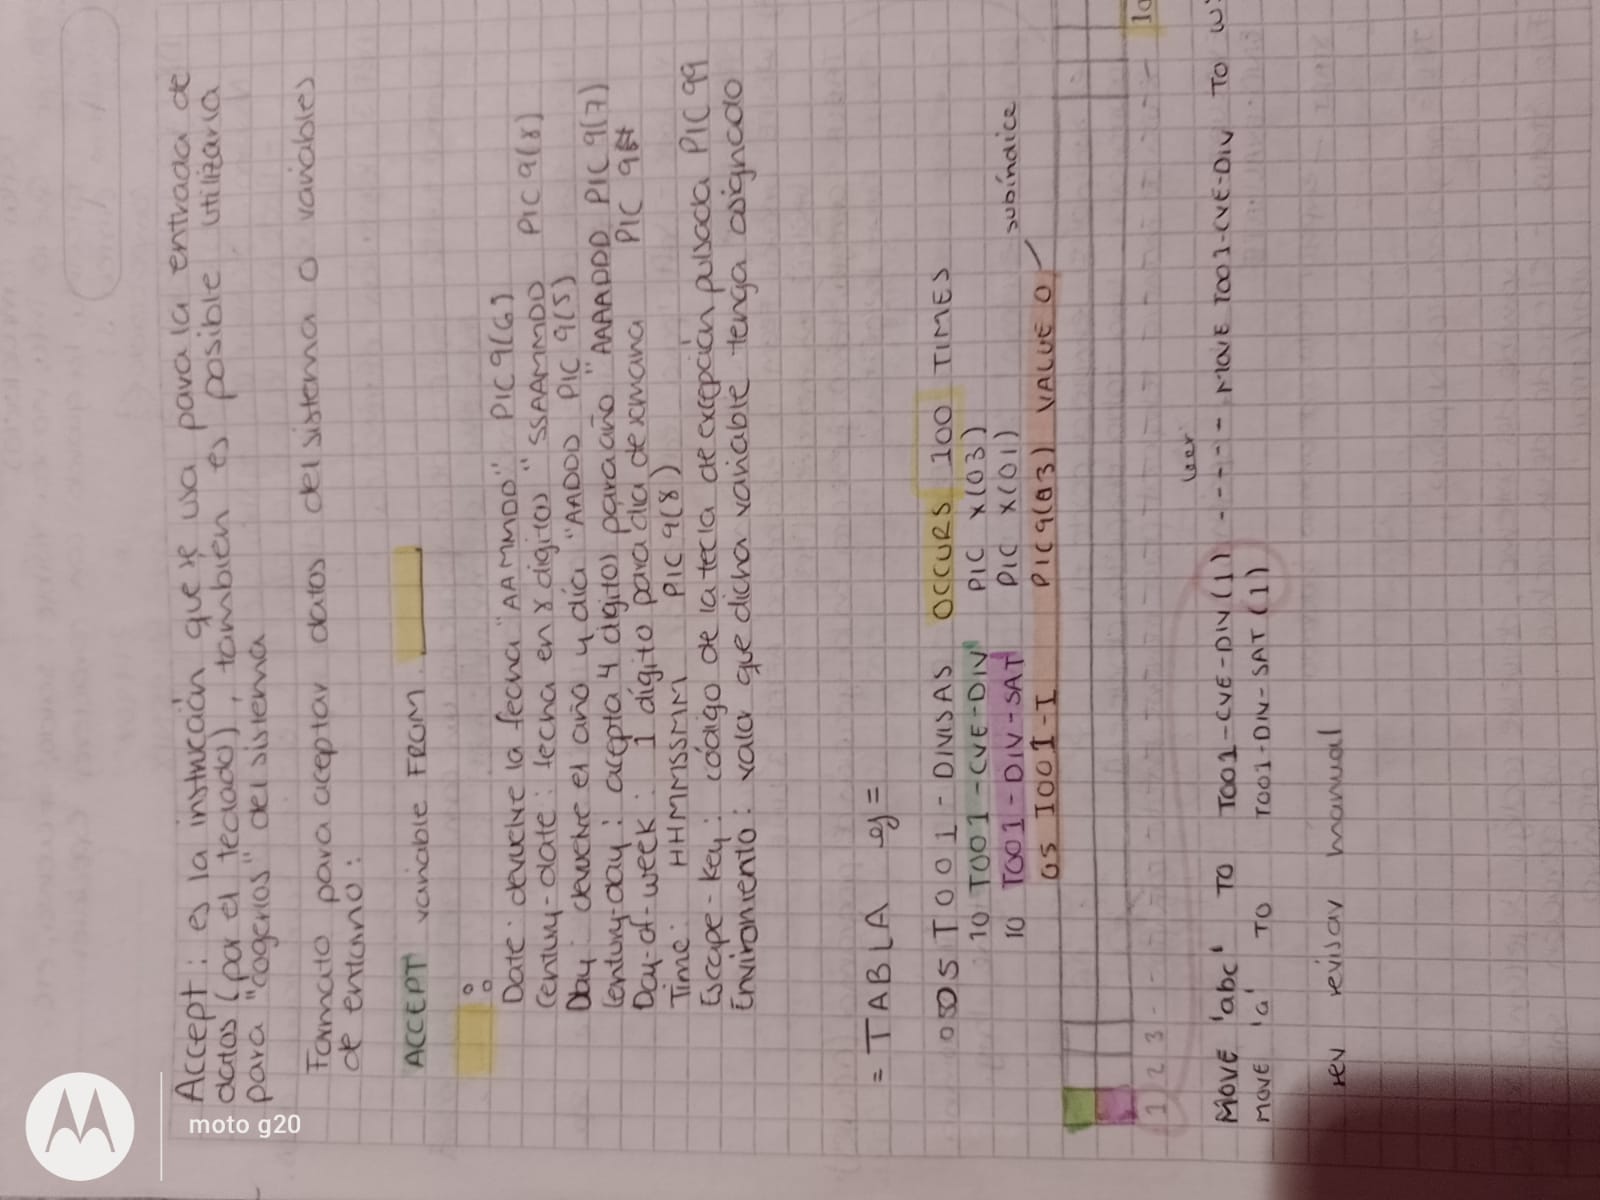 Accept: es la instrucción que se usa para la entrada de
datos (por el teclado), también es posible utilizarla
para "cogerlos" del sistema
Formato para aceptar datos del sistema o variables
de entorno:
ACCEPT variable FROM
:
Date: devuelve la fecha "AAMMDD" PIC 9(6)
Century-date: fecha en 8 digitos "SSAAMMDD PIC 9(8)
Day: devuelve el año y día "AADDD PIC 9(5)
Century-day: acepta 4 digitos para año "AAAADDD PIC 9(7)
Day-of-week: 1 dígito para dia de semana PIC 9
Time: HHMMSSMM PIC 9(8)
Escape-key: código de la tecla de excepción pulsada PIC 99
Enviromiento: valor que dicha variable tenga asignado
= TABLA ej=
05 T001-DIVISAS OCCURS 100 TIMES
10 T001-CVE-DIV PIC X(03)
10 T001-DIV-SAT PIC X(01)
05 I001-I PIC 9(03) VALUE 0
subíndice
1 2 3 - - - - - - - - - - 10
leer
MOVE 'abc' TO T001-CVE-DIV (1) - - - - - MOVE T001-CVE-DIV TO W
MOVE 'a' TO T001-DIV-SAT (1)
rev revisar manual
moto g20